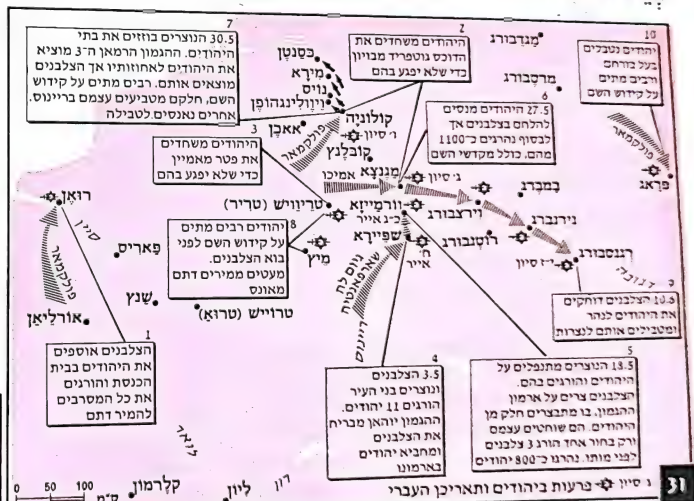 7
30.5 הנוצרים בוזזים את בתי
היהודים. ההגמון הרמאן ה-3 מוציא
את היהודים לאחוזותיו אך הצלבנים
מוצאים אותם. רבים מתים על קידוש
השם, חלקם מטביעים עצמם בריינוס.
אחרים נאנסים לטבילה
2
היהודים משחדים את
הדוכס גוטפריד מבויון
כדי שלא יפגע בהם
10
יהודים נטבלים
בעל כורחם
ורבים מתים
על קידוש השם
6
27.5 היהודים מנסים
להלחם בצלבנים אך
לבסוף נהרגים כ-1100
מהם, כולל מקדשי השם
3
היהודים משחדים
את פטר מאמיין
כדי שלא יפגע בהם
8
יהודים רבים מתים
על קידוש השם לפני
בוא הצלבנים.
מעטים ממירים דתם
מאונס
1
הצלבנים אוספים
את היהודים בבית
הכנסת והורגים
את כל המסרבים
להמיר דתם
4
3.5 הצלבנים
ונוצרים בני העיר
הורגים 11 יהודים.
ההגמון יוהאן מבריח
את הצלבנים
ומחביא יהודים
בארמונו
5
18.5 הנוצרים מתנפלים על
היהודים והורגים בהם.
הצלבנים צרים על ארמון
ההגמון, בו מתבצרים חלק מן
היהודים. הם שוחטים עצמם
ורק בחור אחד הורג 3 צלבנים
לפני מותו. נהרגו כ-800 יהודים
הצלבנים דוחקים
את היהודים לנהר
ומטבילים אותם לנצרות
מגדבורג
מרסבורג
כסנטן
מירא
נויס
וינולינגהופן
קולוניה
ו' סיון
אאכן
קובלנץ
פולקמאר
מגנצא
ג' סיון
אמיכו
וורמייזא
כ"ג אייר
שפיירא
ח' אייר
במברג
וירצבורג
נירנברג
רוטנבורג
רגנסבורג
י"ז סיון
דנובה
פולקמאר
פראג
טריוויש (טריר)
מיץ
רואן
סיין
פאריס
פולקמאר
אורליאן
שנץ
טרוייש (טרוא)
גיום לה שארפאנטיה
ריינוס
לואר
קלרמון
ליון
רון
0 50 100 ק"מ
ג' סיון פרעות ביהודים ותאריכן העברי
31